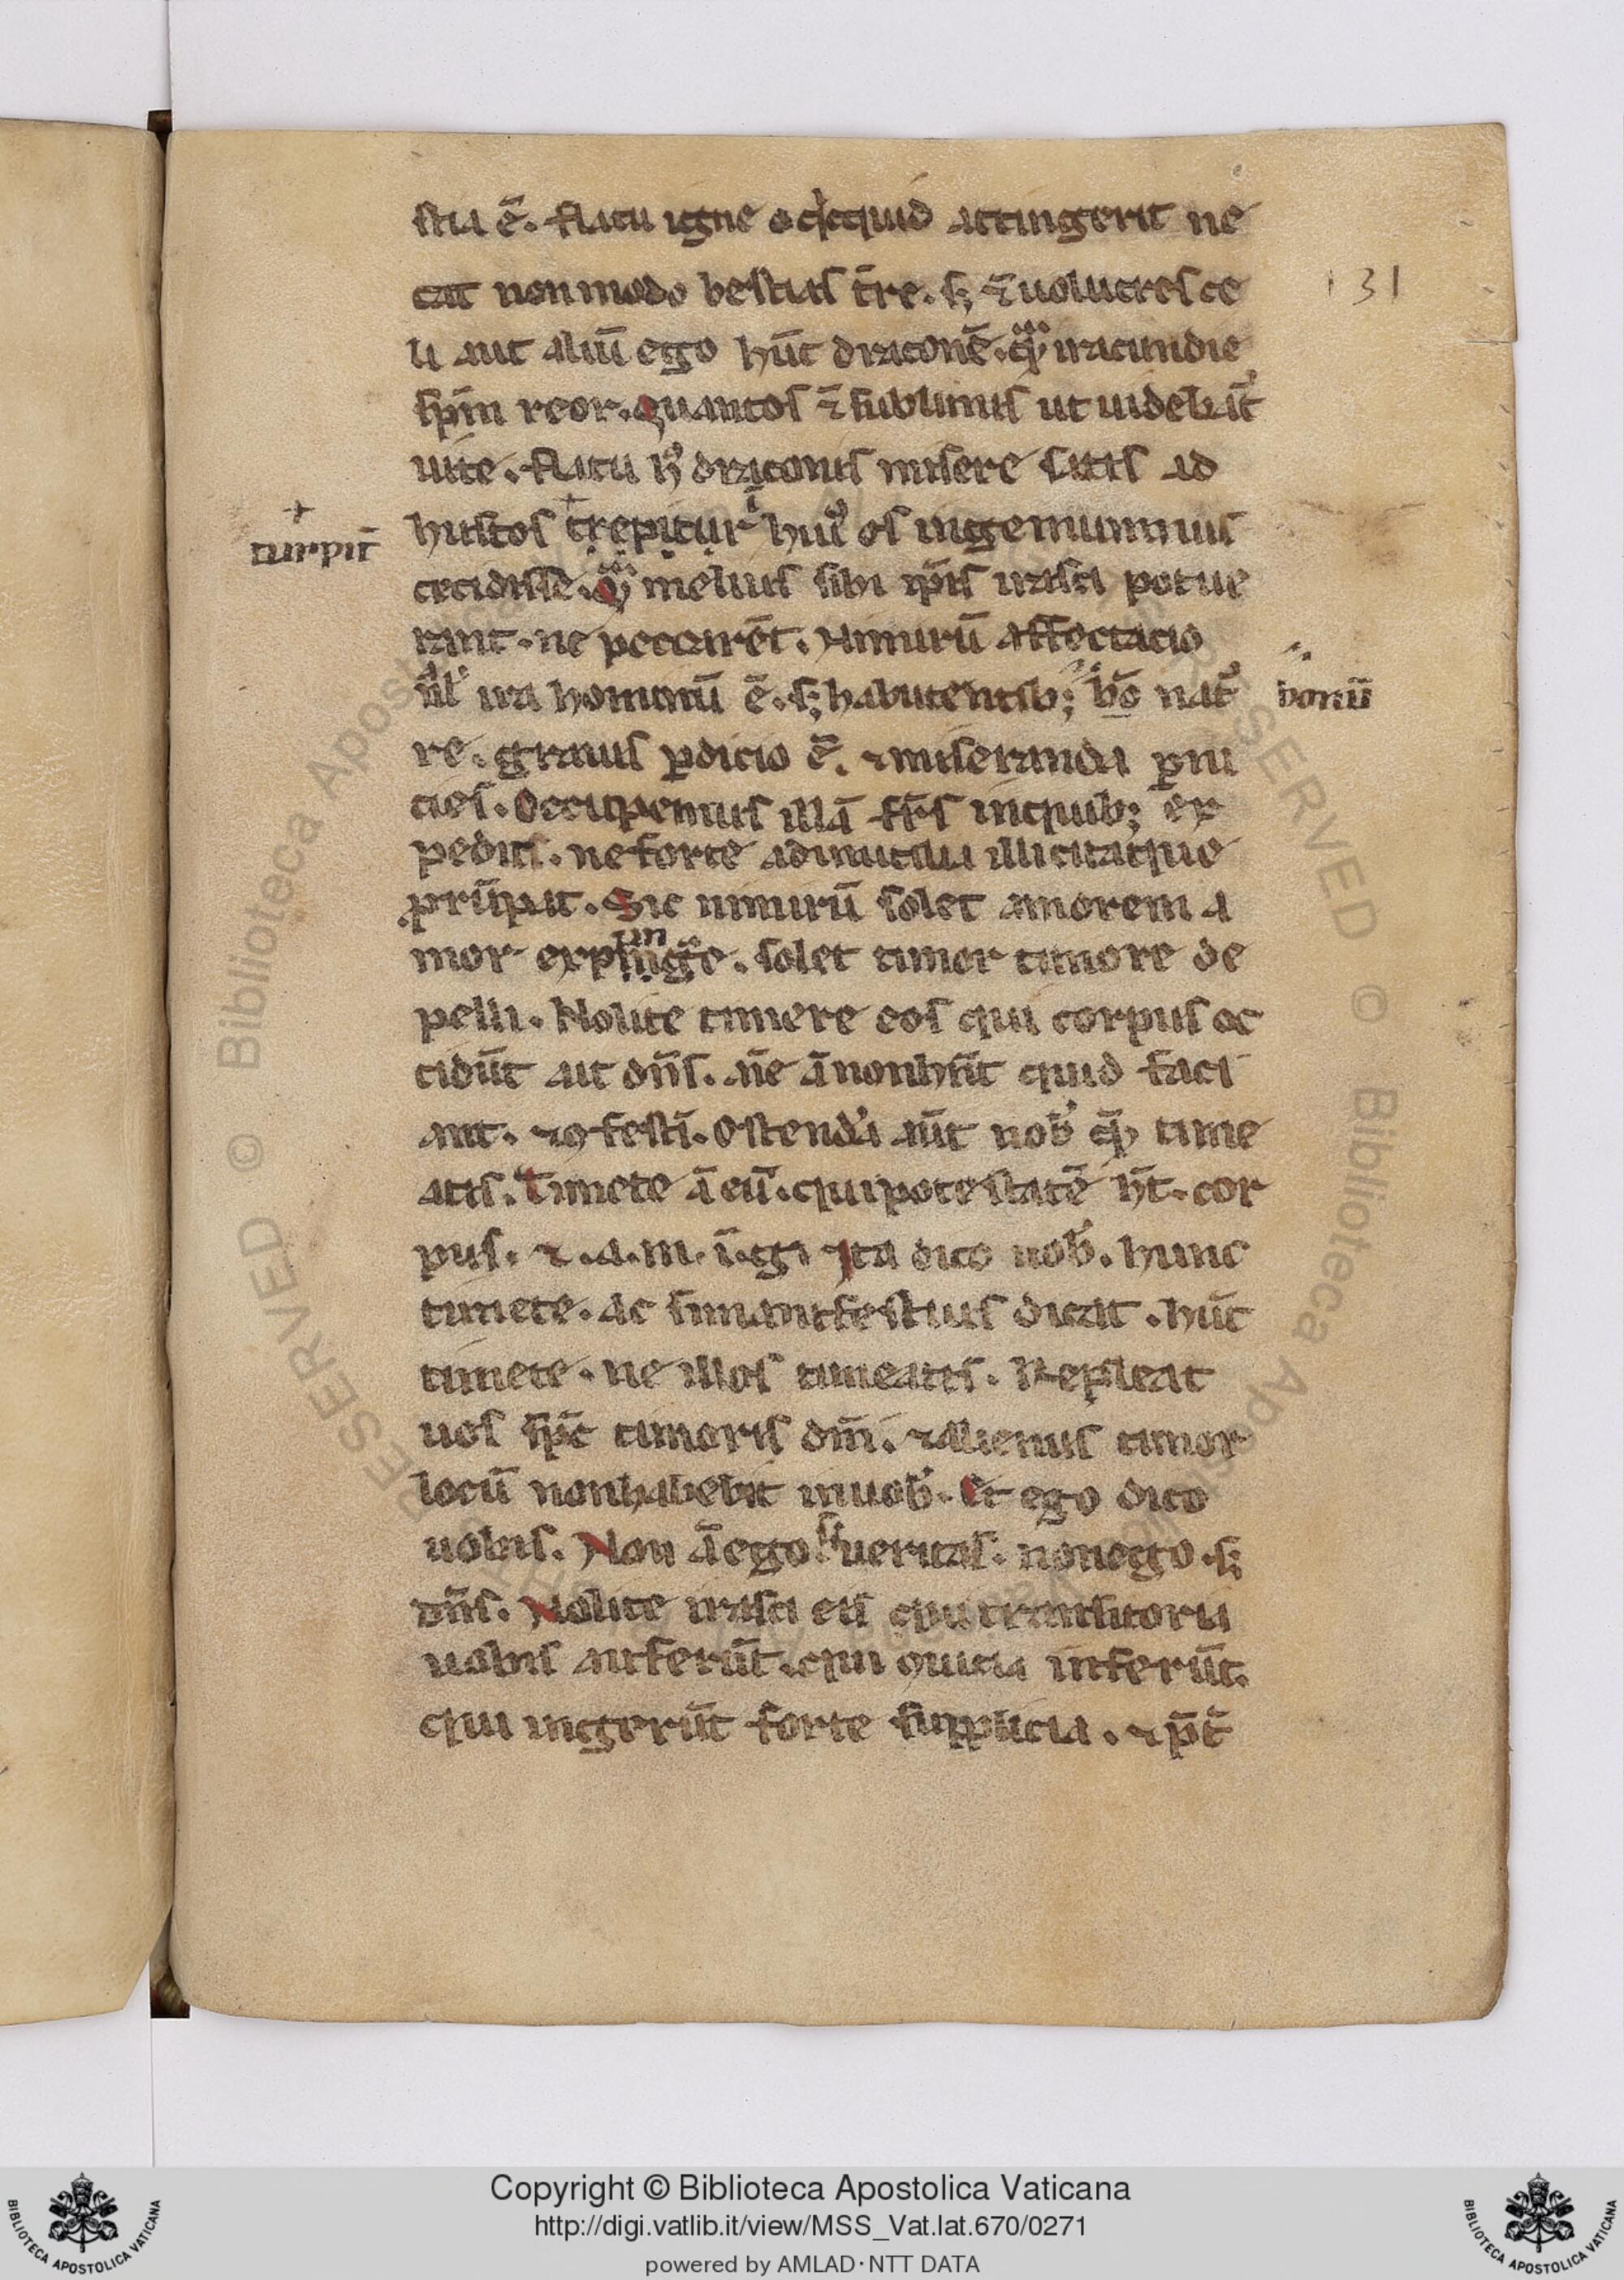 stia ē. flatu igne o qͥcquid attingerit ne
cat non modo bestias t̄re. s; ⁊ uolucres ce
li aut aliū ego hūc draconē. qᷓ iracundie
sp̄m reor. Quantos ⁊ sublimis ut uidebat̄
uite. flatu hꝰ draconis misere satis ad
+
turpit̄
hustos trepitur huiꝰ os ingemuimus
cecidisse. Qᷓ melius sibi ip̄is irasci potue
rant. ne peccarēt. Nimirū affectacio
nͣlͥ ira hominū ē. s; habutentib; b̄o natꝰ
bonū
re. grauis ꝑdicio ē. ⁊ miseranda ꝑni
cies. Occupemus illā fr̄s in quib; ex
pedit. ne forte ad inutilia illicitaque
ꝓrūpat. Sic nimirū solet amorem a
mor expingͤe. solet timor timore de
un
pelli. Nolite timere eos qui corpus oc
cidūt ait dn̄s. aīe ā non hn̄t quid faci
ant. ⁊ ꝯfestī. Ostendā aūt nob̄ qͫ time
atis. Timete ā eū. qui potestatē h̄t. cor
pus. ⁊ .a. m. ī. g. Ita dico uob̄. hunc
timete. Ac si manifestius dicat. hūc
timete. ne illos timeatis. Repleat
uos sp̄c timoris dn̄i. ⁊ alienus timor
locū non habebit in uob̄. Et ego dico
uobis. Non ā ego sꝫ ueritas. non ego. s;
dn̄s. Nolite irasci eis qui transitoria
uobis auferūt. qui ꝯuicia inferūt.
qui ingerūt forte supplicia. ⁊ p̄t̄
131
Copyright © Biblioteca Apostolica Vaticana
http://digi.vatlib.it/view/MSS_Vat.lat.670/0271
powered by AMLAD·NTT DATA